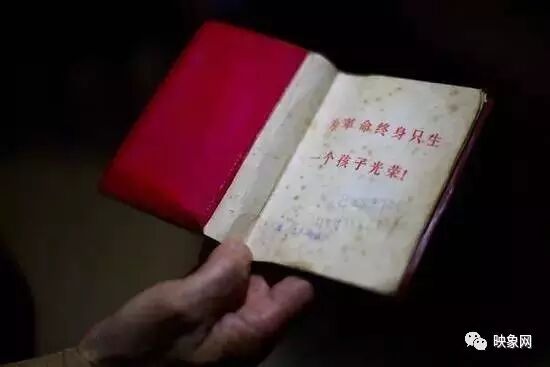 为革命终身只生
一个孩子光荣!
映象网